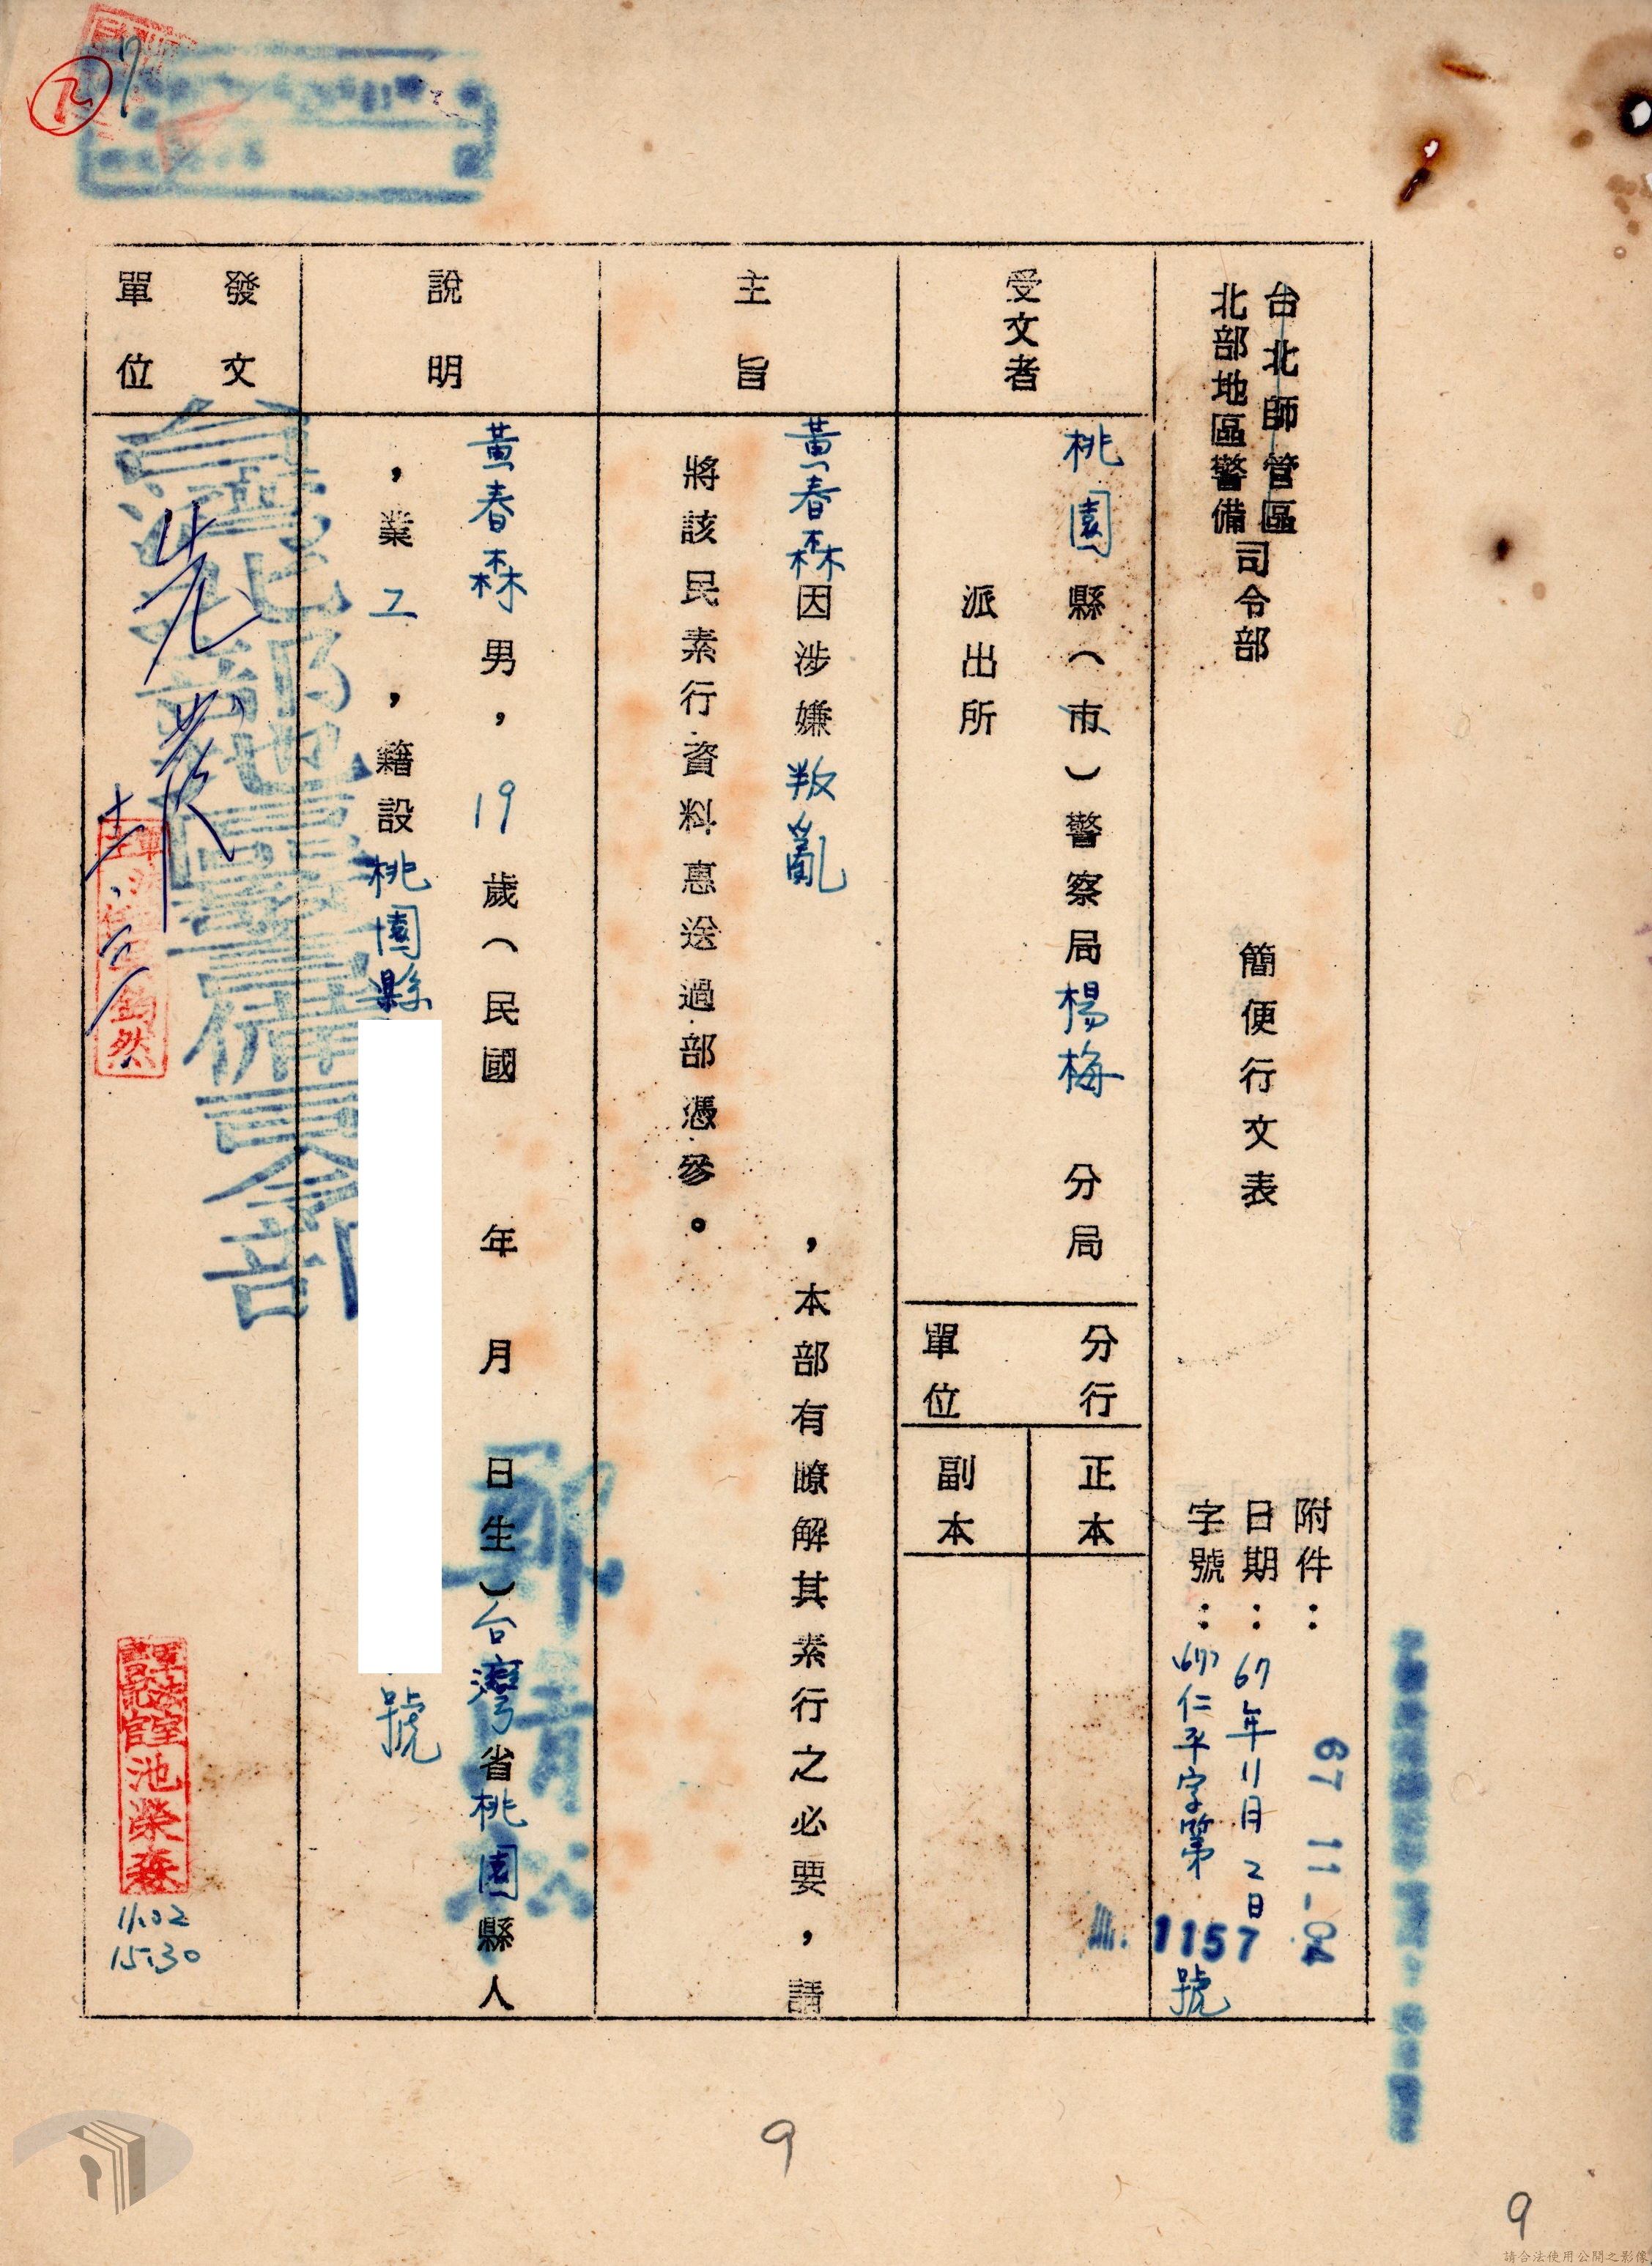 台北師管區
北部地區警備
司令部
簡便行文表
附件：
日期：67年11月2日
字號：(67)仁平字第1157號
67 11 -04
受文者
桃園縣（市）警察局楊梅 分局
派出所
分行單位
正本
副本
主旨
黃春森因涉嫌叛亂 ，本部有瞭解其素行之必要，請
將該民素行資料惠送過部憑參。
說明
黃春森男，19歲（民國 年 月 日生）台灣省桃園縣人
，業工，籍設桃園縣
號
發文單位
台灣北部地區警備司令部
先發
軍法室書記官池榮森
11.02
15.30
9
9
請合法使用公開之影像